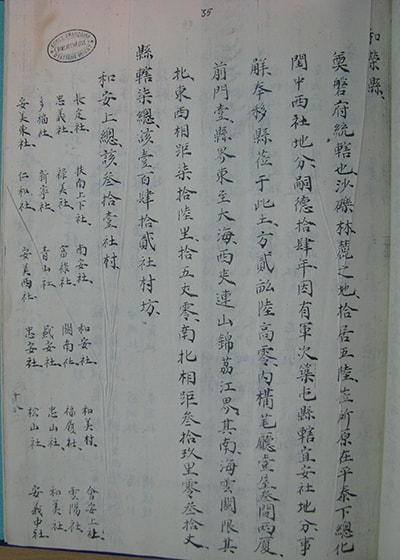 35
和榮縣
奠磐府統轄也沙礫林麓之地拾居五陸莅所原在平泰下總化
閭中西社地分嗣德拾肆年因有軍次築屯縣轄宜安社地分事
觧奉移縣莅于此土方貳畝陸高零內構笔廳壹屋叁間兩厦
前門壹縣界東至大海西夾連山錦荔江界其南海雲關限其
北東西相距柒拾陸里拾五丈零南北相距叁拾玖里零叁拾丈
縣轄柒總該壹百肆拾貳社村坊
和安上總該叁拾壹社村
長定社 扶南上下社 南安社 和安社 和美村 會安上社
忠義社 祿美社 富祿社 閩南社 福良社 雲陽社
多福社 新寧社 青山社 盛安社 忠山社 和美社
安美東社 仁和社 安美西社 忠安社 松山社 安義中社